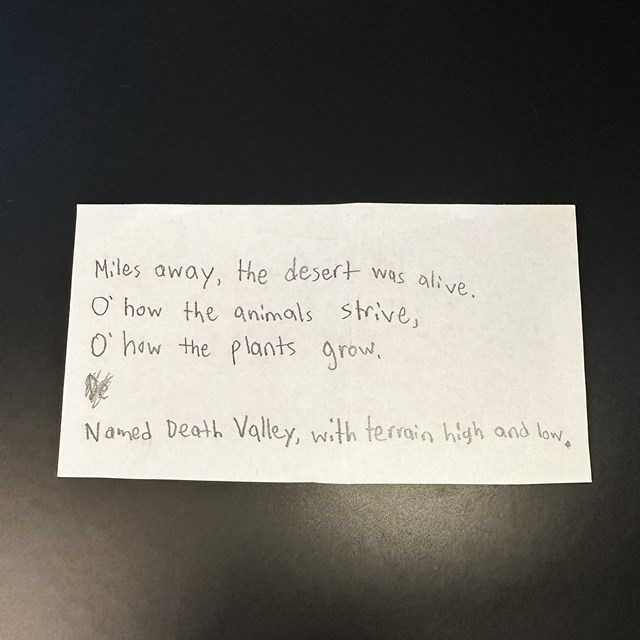 Miles away, the desert was alive.
O' how the animals strive,
O' how the plants grow.
Named Death Valley, with terrain high and low.